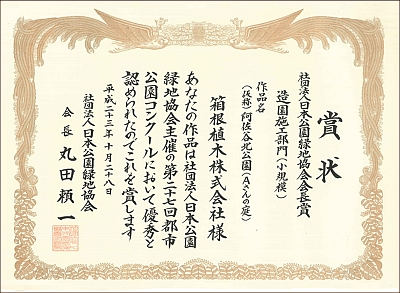 賞状
社団法人日本公園緑地協会会長賞
造園施工部門(小規模)
作品名
(仮称)阿佐谷北公園(Aさんの庭)
箱根植木株式会社様
あなたの作品は社団法人日本公園
緑地協会主催の第二十七回都市
公園コンクールにおいて優秀と
認められたのでこれを賞します
平成二十三年十月二十八日
社団法人日本公園緑地協会
会長丸田頼一